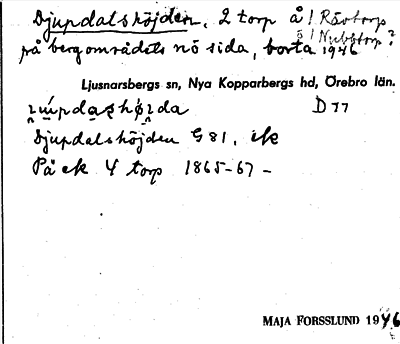 Djupdalshöjden, 2 torp å! Rävtorp
på bergområdets nö sida, borta 1946 ö! Nubbtorp?
Ljusnarsbergs sn, Nya Kopparbergs hd, Örebro län.
D 77
Djupdalshöjden G 81, ek
På ek 4 torp 1865-67 -
MAJA FORSSLUND 1946